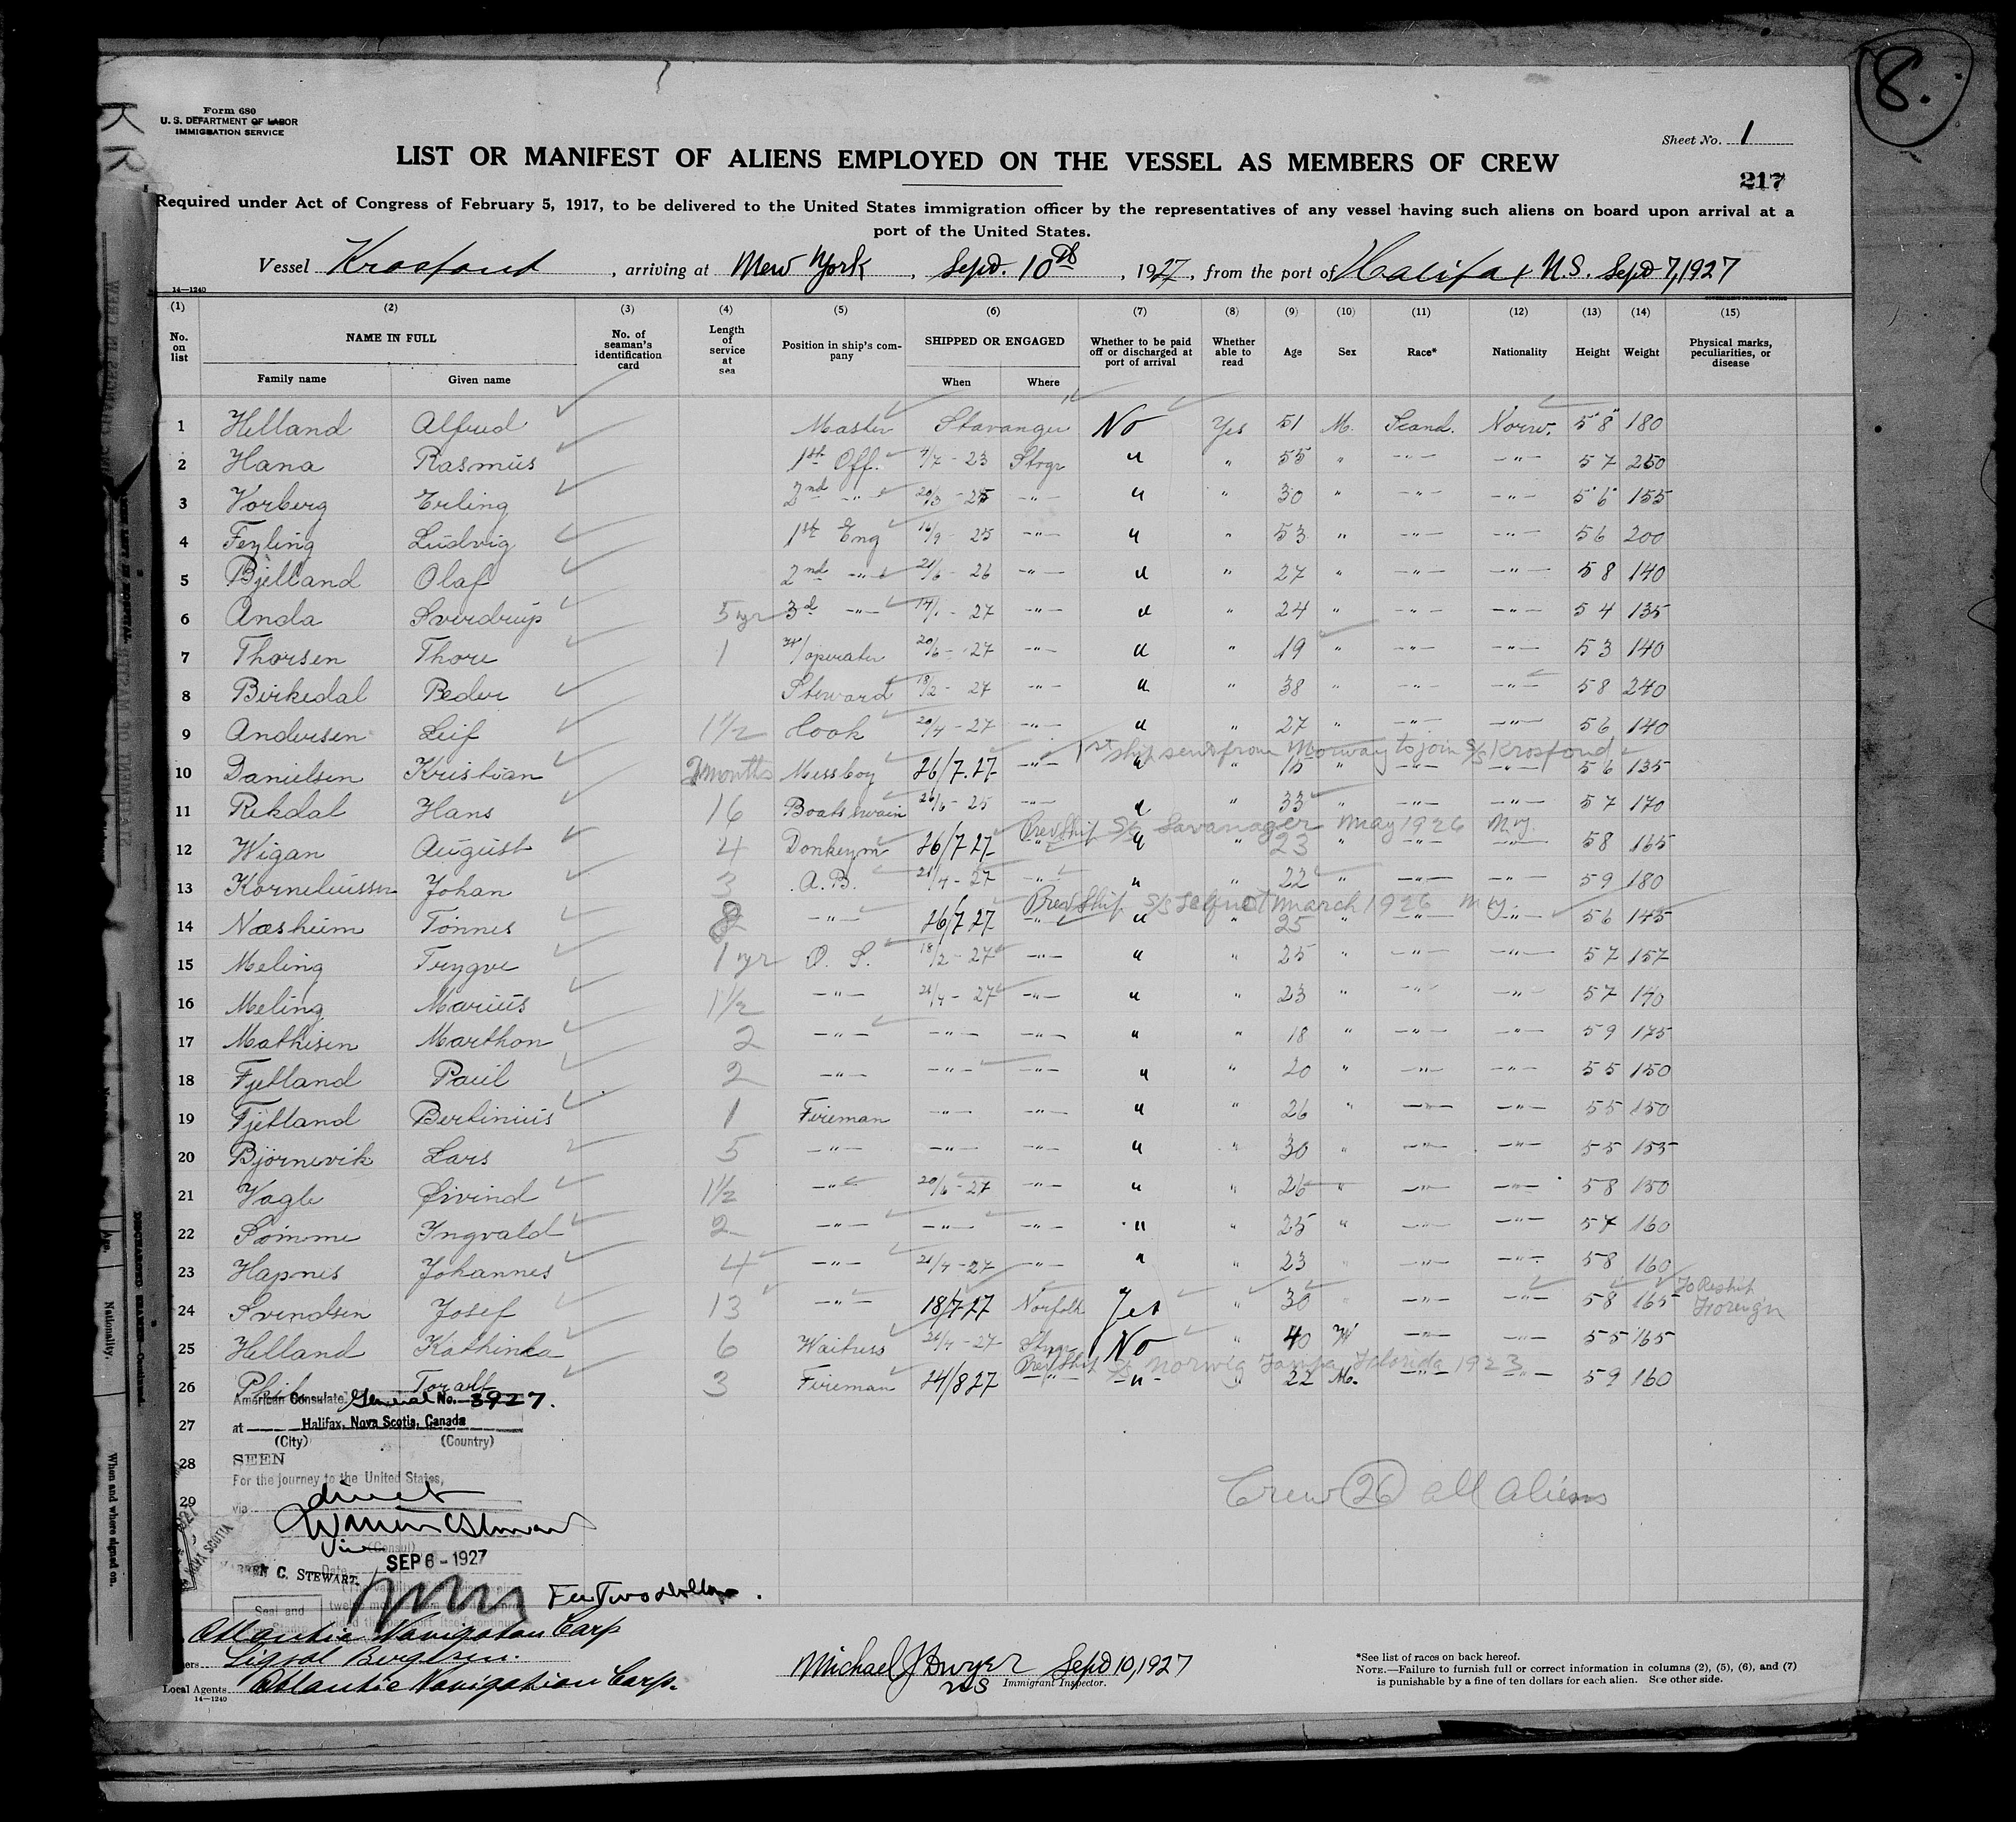 8.
Form 680
U. S. DEPARTMENT OF LABOR
IMMIGRATION SERVICE
Sheet No. 1
LIST OR MANIFEST OF ALIENS EMPLOYED ON THE VESSEL AS MEMBERS OF CREW
217
Required under Act of Congress of February 5, 1917, to be delivered to the United States immigration officer by the representatives of any vessel having such aliens on board upon arrival at a
port of the United States.
Vessel Krosfond, arriving at New York, Sept. 10th, 1927, from the port of Halifax N.S. Sept 7, 1927
14—1240
(1) (2) (3) (4) (5) (6) (7) (8) (9) (10) (11) (12) (13) (14) (15)
No. on list NAME IN FULL Family name Given name No. of seaman's identification card Length of service at sea Position in ship's company SHIPPED OR ENGAGED When Where Whether to be paid off or discharged at port of arrival Whether able to read Age Sex Race* Nationality Height Weight Physical marks, peculiarities, or disease
1 Helland Alfred Master Stavanger No Yes 51 M. Scand. Norw. 5'8" 180
2 Hana Rasmus 1st Off. 4/7 - 23 Stvgr " " 55 " -"- -"- 5 7 250
3 Vorberg Erling 2nd -"- 20/3 - 25 -"- " " 30 " -"- -"- 5'6" 155
4 Feyling Ludvig 1st Eng 16/9 - 25 -"- " " 53 " -"- -"- 5 6 200
5 Bjelland Olaf 2nd -"- 21/6 - 26 -"- " " 27 " -"- -"- 5 8 140
6 Anda Sverdrup 5 yr 3d -"- 14/1 - 27 -"- " " 24 " -"- -"- 5 4 135
7 Thorsen Thore 1 operator 20/6 - 27 -"- " " 19 " -"- -"- 5 3 140
8 Birkedal Peder Steward 18/2 - 27 -"- " " 38 " -"- -"- 5 8 240
9 Andersen Leif 1 1/2 Cook 20/4 - 27 -"- " " 27 " -"- -"- 5 6 140
1st ship sent from Norway to join S/S Krosfond
10 Danielsen Kristian 2 months Messboy 26/7-27 -"- " " 15 " -"- -"- 5 6 135
11 Rekdal Hans 16 Boatswain 26/6 - 25 -"- " " 33 " -"- -"- 5 7 170
Prev Ship S/S Savanager May 1926 N.Y.
12 Wigan August 4 Donkeym 26/7 27 -"- " " 23 " -"- -"- 5 8 165
13 Korneliussen Johan 3 A.B. 21/4 - 27 -"- " " 22 " -"- -"- 5 9 180
Prev Ship S/S March 1926 N.Y.
14 Næsheim Tönnes 8 -"- 26/7 27 -"- " " 25 " -"- -"- 5 6 145
15 Meling Trygve 1 yr O. S. 18/2 - 27 -"- " " 25 " -"- -"- 5 7 157
16 Meling Marius 1 1/2 -"- 21/4 - 27 -"- " " 23 " -"- -"- 5 7 140
17 Mathisen Marthon 2 -"- -"- -"- " " 18 " -"- -"- 5 9 175
18 Fjetland Paul 2 -"- -"- -"- " " 20 " -"- -"- 5 5 150
19 Fjetland Bertinius 1 Fireman -"- -"- " " 26 " -"- -"- 5 5 150
20 Bjørnevik Lars 5 -"- -"- -"- " " 30 " -"- -"- 5 5 155
21 Vagle Øivind 1 1/2 -"- 20/6 - 27 -"- " " 26 " -"- -"- 5 8 150
22 Sömme Ingvald 2 -"- -"- -"- " " 25 " -"- -"- 5 7 160
23 Hapnes Johannes 4 -"- 21/4 - 27 -"- " " 23 " -"- -"- 5 8 160
24 Svendsen Josef 13 -"- 18/7-27 Norfolk Yes " 30 " -"- -"- 5 8 165 To Reship Foreign
25 Helland Kathinka 6 Waitress 21/4 - 27 Stvgr No " 40 W -"- -"- 5 5 165
Prev Ship S/S Norwig Tampa Florida 1923
26 Toralf 3 Fireman 24/8 27 -"- -"- " 22 M. -"- -"- 5 9 160
27
28
29
American Consulate General No. 3927.
at Halifax, Nova Scotia, Canada
(City) (Country)
SEEN
For the journey to the United States,
via direct
Warren C Stewart
Vice (Consul)
Date SEP 6 - 1927
WARREN C. STEWART.
Fee Two dollars.
Seal and
Crew 26 all aliens
Atlantic Navigation Corp
Sigval Bergesen.
Local Agents Atlantic Navigation Corp.
14—1240
Michael J Dwyer Sept 10, 1927
Immigrant Inspector.
*See list of races on back hereof.
NOTE.—Failure to furnish full or correct information in columns (2), (5), (6), and (7)
is punishable by a fine of ten dollars for each alien. See other side.